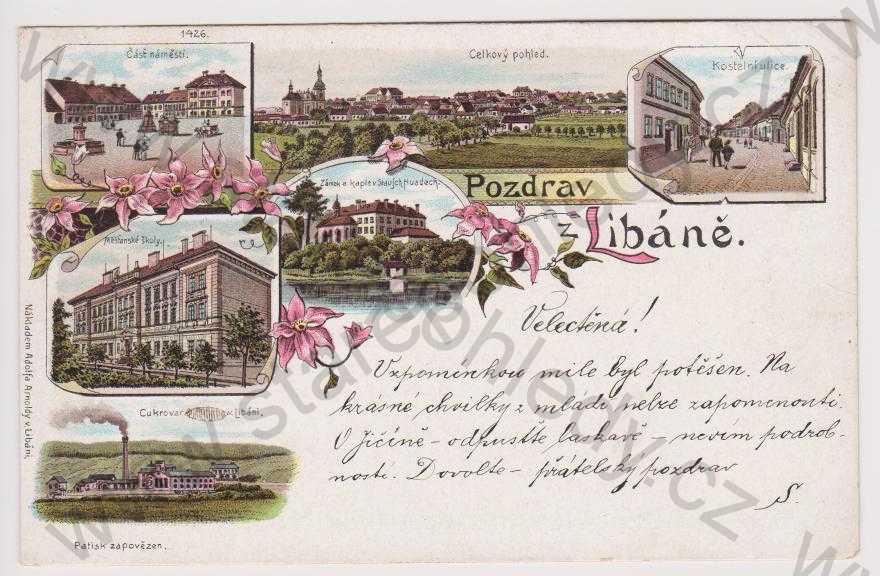 1426.
Část náměstí.
Celkový pohled.
Kostelní ulice.
Zámek a kaple v Starých Hradech.
Pozdrav
z Libáně.
Měšťanské školy.
Velectěná!
Vzpomínkou mile byl potěšen. Na
krásné chvilky z mládí nelze zapomenouti.
O Jičíně – odpusťte laskavě – nevím podrob-
ností. Dovolte – přátelský pozdrav
S.
Cukrovar Libáni.
Nákladem Adolfa Arnoldy v Libáni.
Patisk zapovězen.
www.stare-pohledy.cz